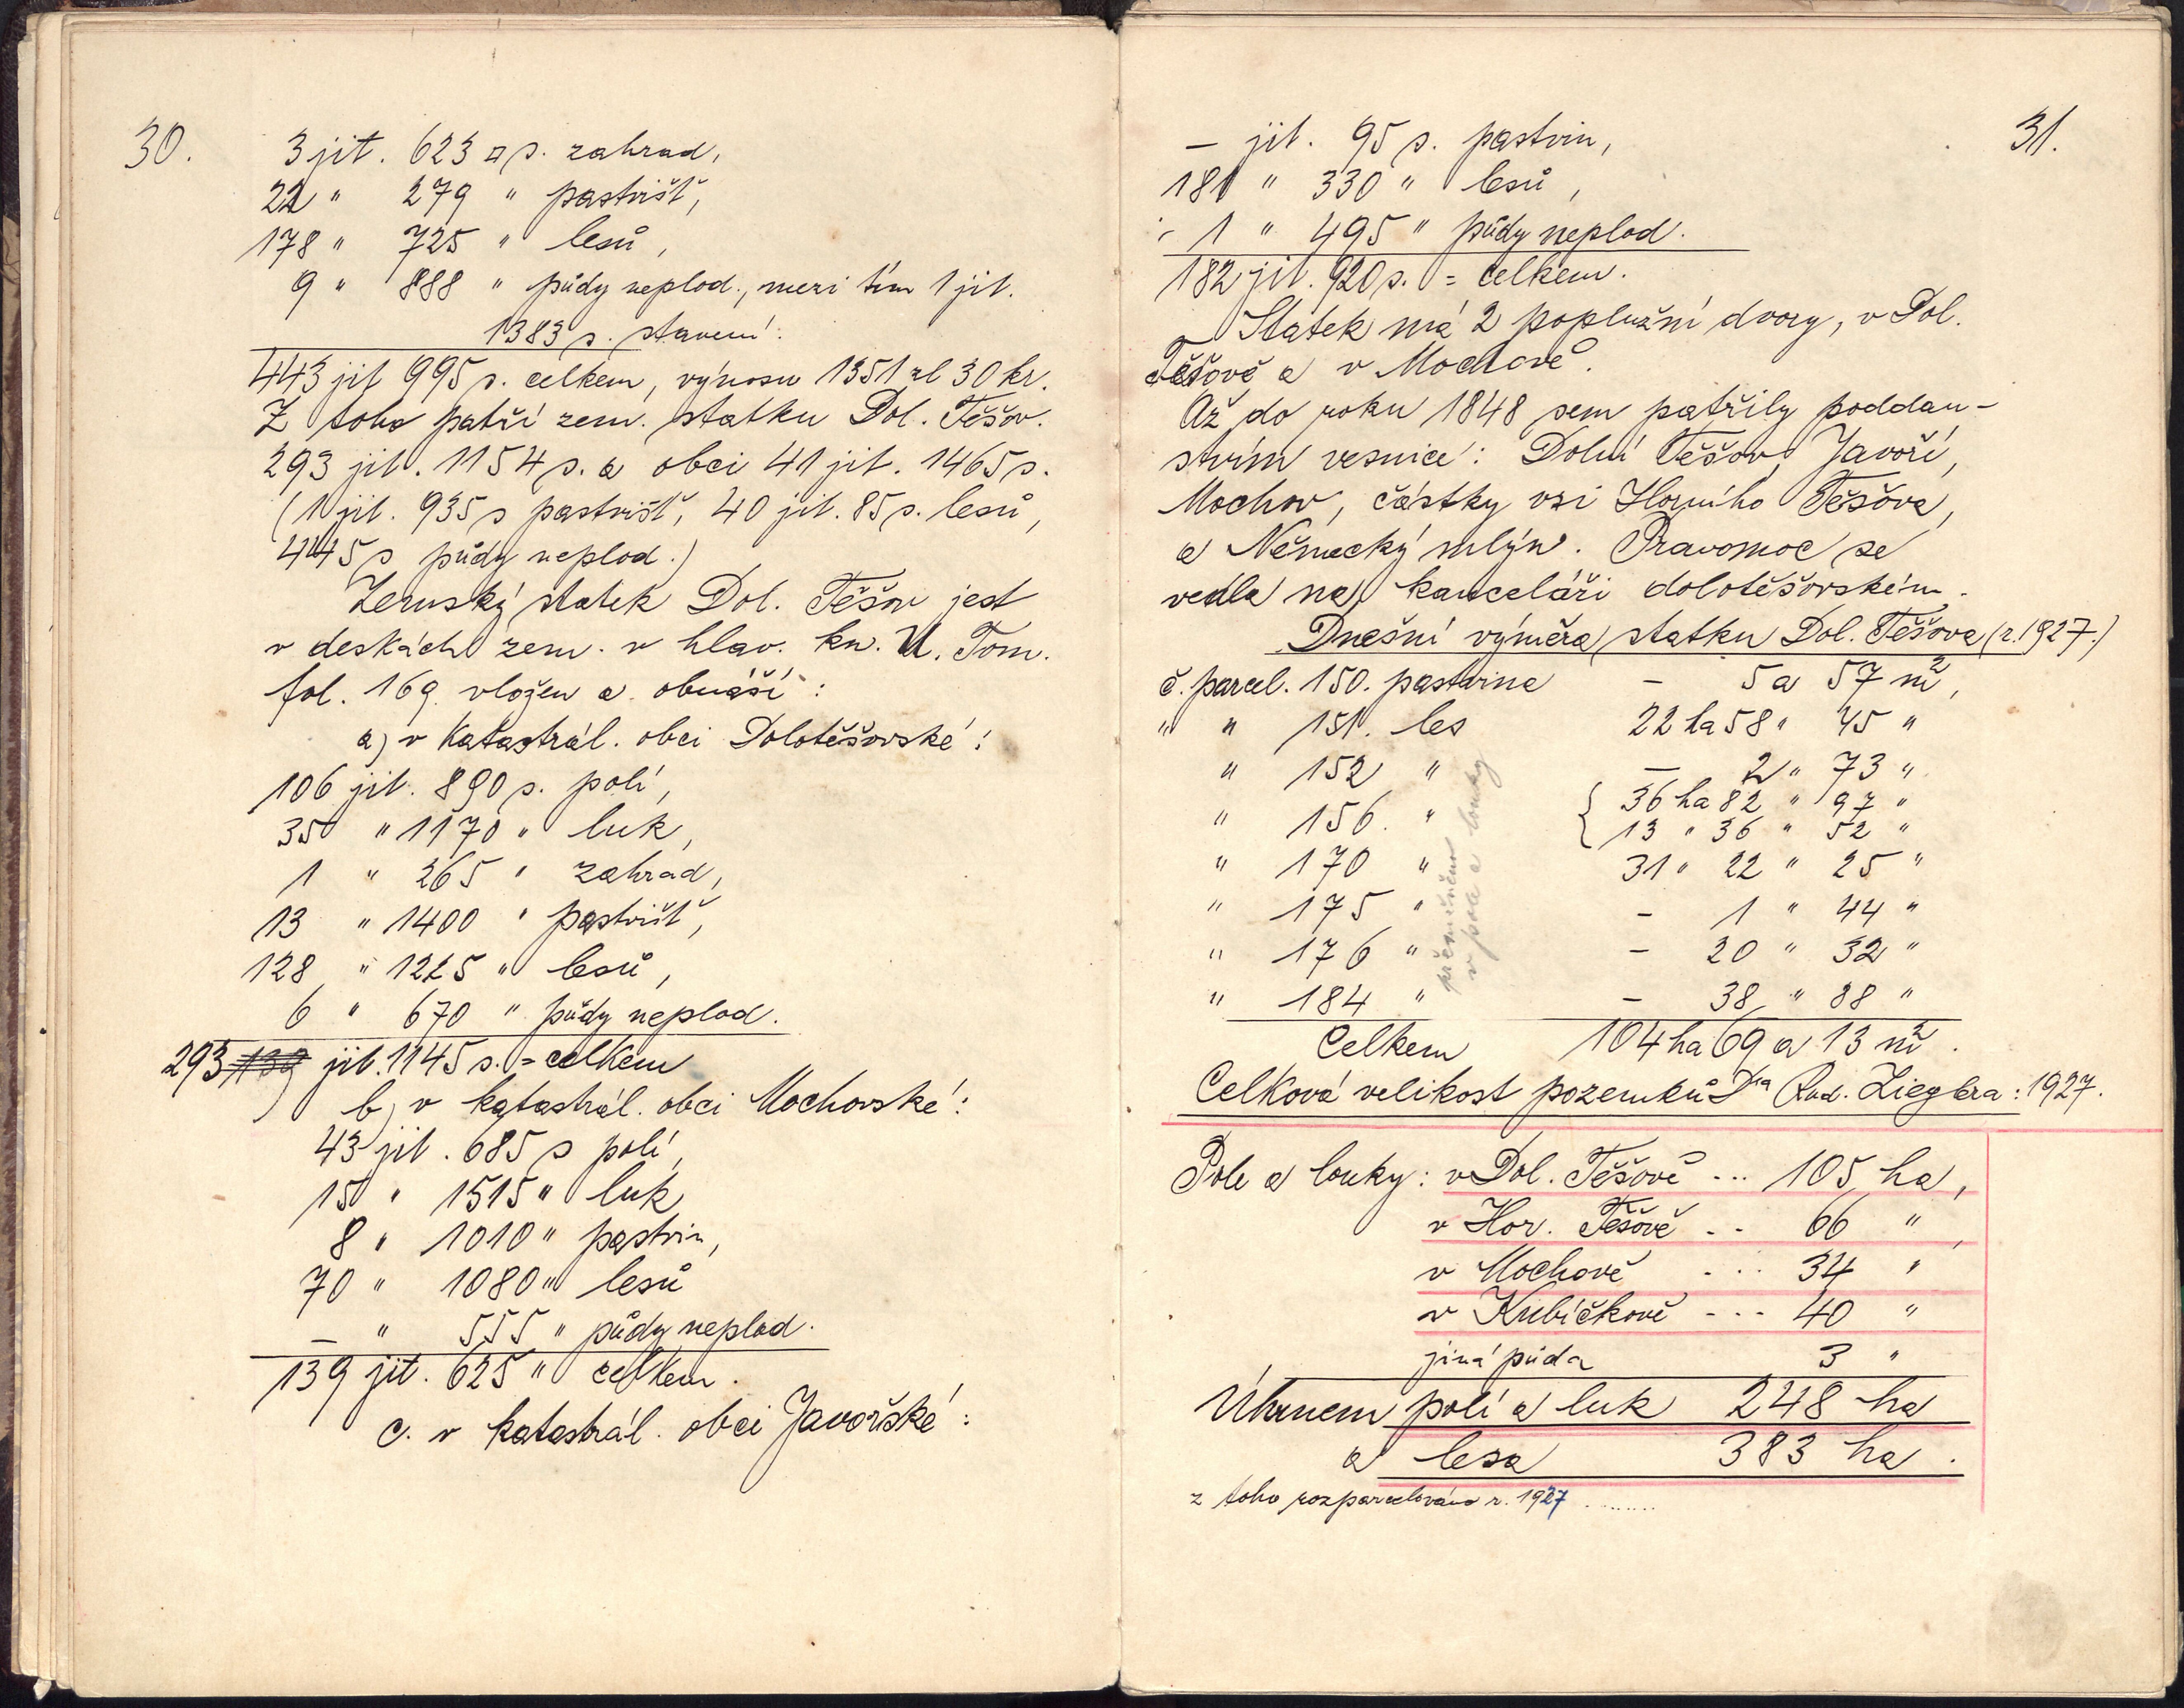 30.
3 jit. 623 □ s. zahrad,
22 " 279 " pastvišť,
178 " 725 " lesů,
9 " 888 " půdy neplod., mezi tím 1 jit.
1383 s. stavení.
443 jit 995 s. celkem, výnosu 1351 zl 30 kr.
Z toho patří zem. statku Dol. Těšov.
293 jit. 1154 s. a obci 41 jit. 1465 s.
(1 jit. 935 s pastvišť, 40 jit. 85 s. lesů,
445 s půdy neplod.)
Zemský statek Dol. Těšov jest
v deskách zem. v hlav. kn. U. Tom.
fol. 169 vložen a obnáší:
a) v Katastrál. obci Dolotěšovské:
106 jit. 890 s. polí,
35 " 1170 " luk,
1 " 265 " zahrad,
13 " 1400 " pastvišť,
128 " 1225 " lesů,
6 " 670 " půdy neplod.
293 139 jit. 1145 s. = celkem
b) v katastrál. obci Mochovské:
43 jit. 685 s polí,
15 " 1515 " luk
8 " 1010 " pastvin,
70 " 1080 " lesů
– " 555 " půdy neplod.
139 jit. 625 " celkem.
c. v katastrál. obci Javořské:
31.
– jit. 95 s. pastvin,
181 " 330 " lesů,
1 " 495 " půdy neplod.
182 jit. 920 s. = celkem.
Statek má 2 poplužní dvory, v Dol.
Těšově a v Mochově.
Až do roku 1848 sem patřily poddan-
stvím vesnice: Dolní Těšov, Javoří,
Mochov, částky vsi Horního Těšova,
a Německý mlýn. Pravomoc se
vedla na kanceláři dolotěšovském.
Dnešní výměra statku Dol. Těšova (r. 1927.)
č. parcel. 150. pastvina – 5 a 57 m²,
" " 151. les 22 ha 58 " 45 "
" 152 " – 2 " 73 "
" 156. " { 36 ha 82 " 97 "
{ 13 " 36 " 52 "
" 170 " 31 " 22 " 25 "
" 175 " – 1 " 44 "
" 176 " – 20 " 32 "
" 184 " – 38 " 88 "
přeměněno
v pole a louky
Celkem 104 ha 69 a 13 m².
Celková velikost pozemků Dra Rud. Zieglera: 1927.
Pole a louky: v Dol. Těšově ... 105 ha,
v Hor. Těšově .. 66 ",
v Mochově ... 34 "
v Kubíčkově --- 40 "
jiná půda 3 "
Úhrnem polí a luk 248 ha
a lesa 383 ha.
z toho rozparcelováno r. 1927 ........